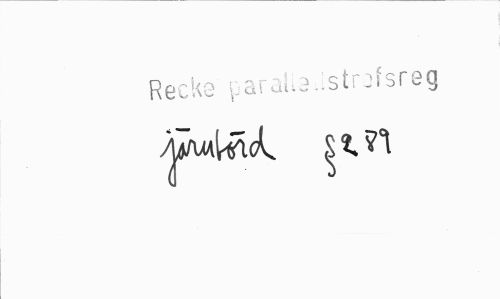 Recke parallellstrofsreg
järnbörd § 289